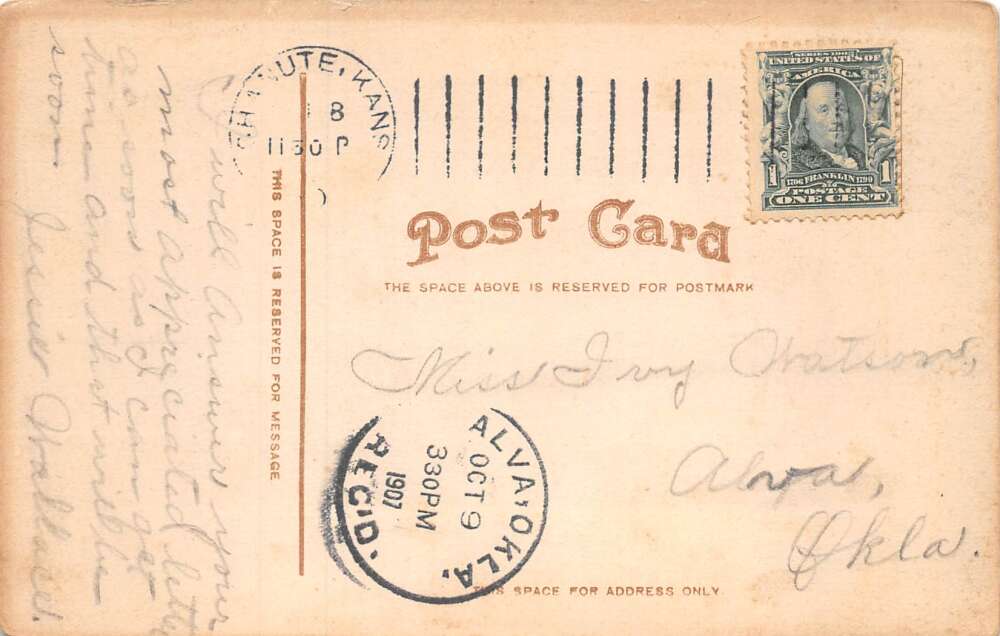 CHANUTE, KANS
8
1130 P
SERIES 1902
UNITED STATES OF
AMERICA
1706 FRANKLIN 1790
1 POSTAGE 1
ONE CENT
Post Card
THE SPACE ABOVE IS RESERVED FOR POSTMARK
THIS SPACE IS RESERVED FOR MESSAGE
I will Answer your
most appreciated letter
as soon as I can get
time and that will be
soon.
Jessie Wallace.
Miss Ivy Watson,
Alva,
Okla.
ALVA, OKLA.
OCT 9
330PM
1907
REC'D.
THIS SPACE FOR ADDRESS ONLY.